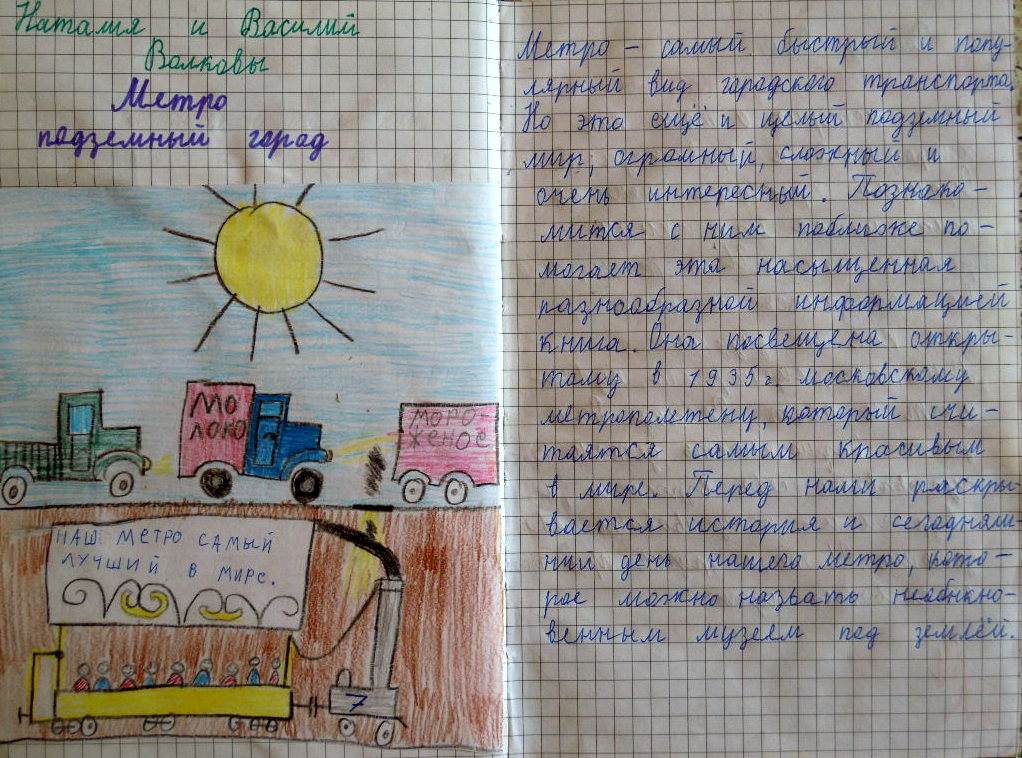 Наталия и Василий
Волковы
Метро
подземный город
МО
ЛОКО
МОРО
ЖЕНОЕ
НАШ МЕТРО САМЫЙ
ЛУЧШИЙ В МИРЕ.
7
Метро – самый быстрый и попу-
лярный вид городского транспорта.
Но это ещё и целый подземный
мир, огромный, сложный и
очень интересный. Познако-
мится с ним поближе по-
могает эта насыщенная
разнообразной информацией
книга. Она посвещена откры-
тому в 1935 г. московскому
метрополетену, который счи-
таятся самым красивым
в мире. Перед нами раскры-
вается история и сегодняш-
нии день нашего метро, кото-
рое можно назвать необыкно-
венным музеям под землёй.